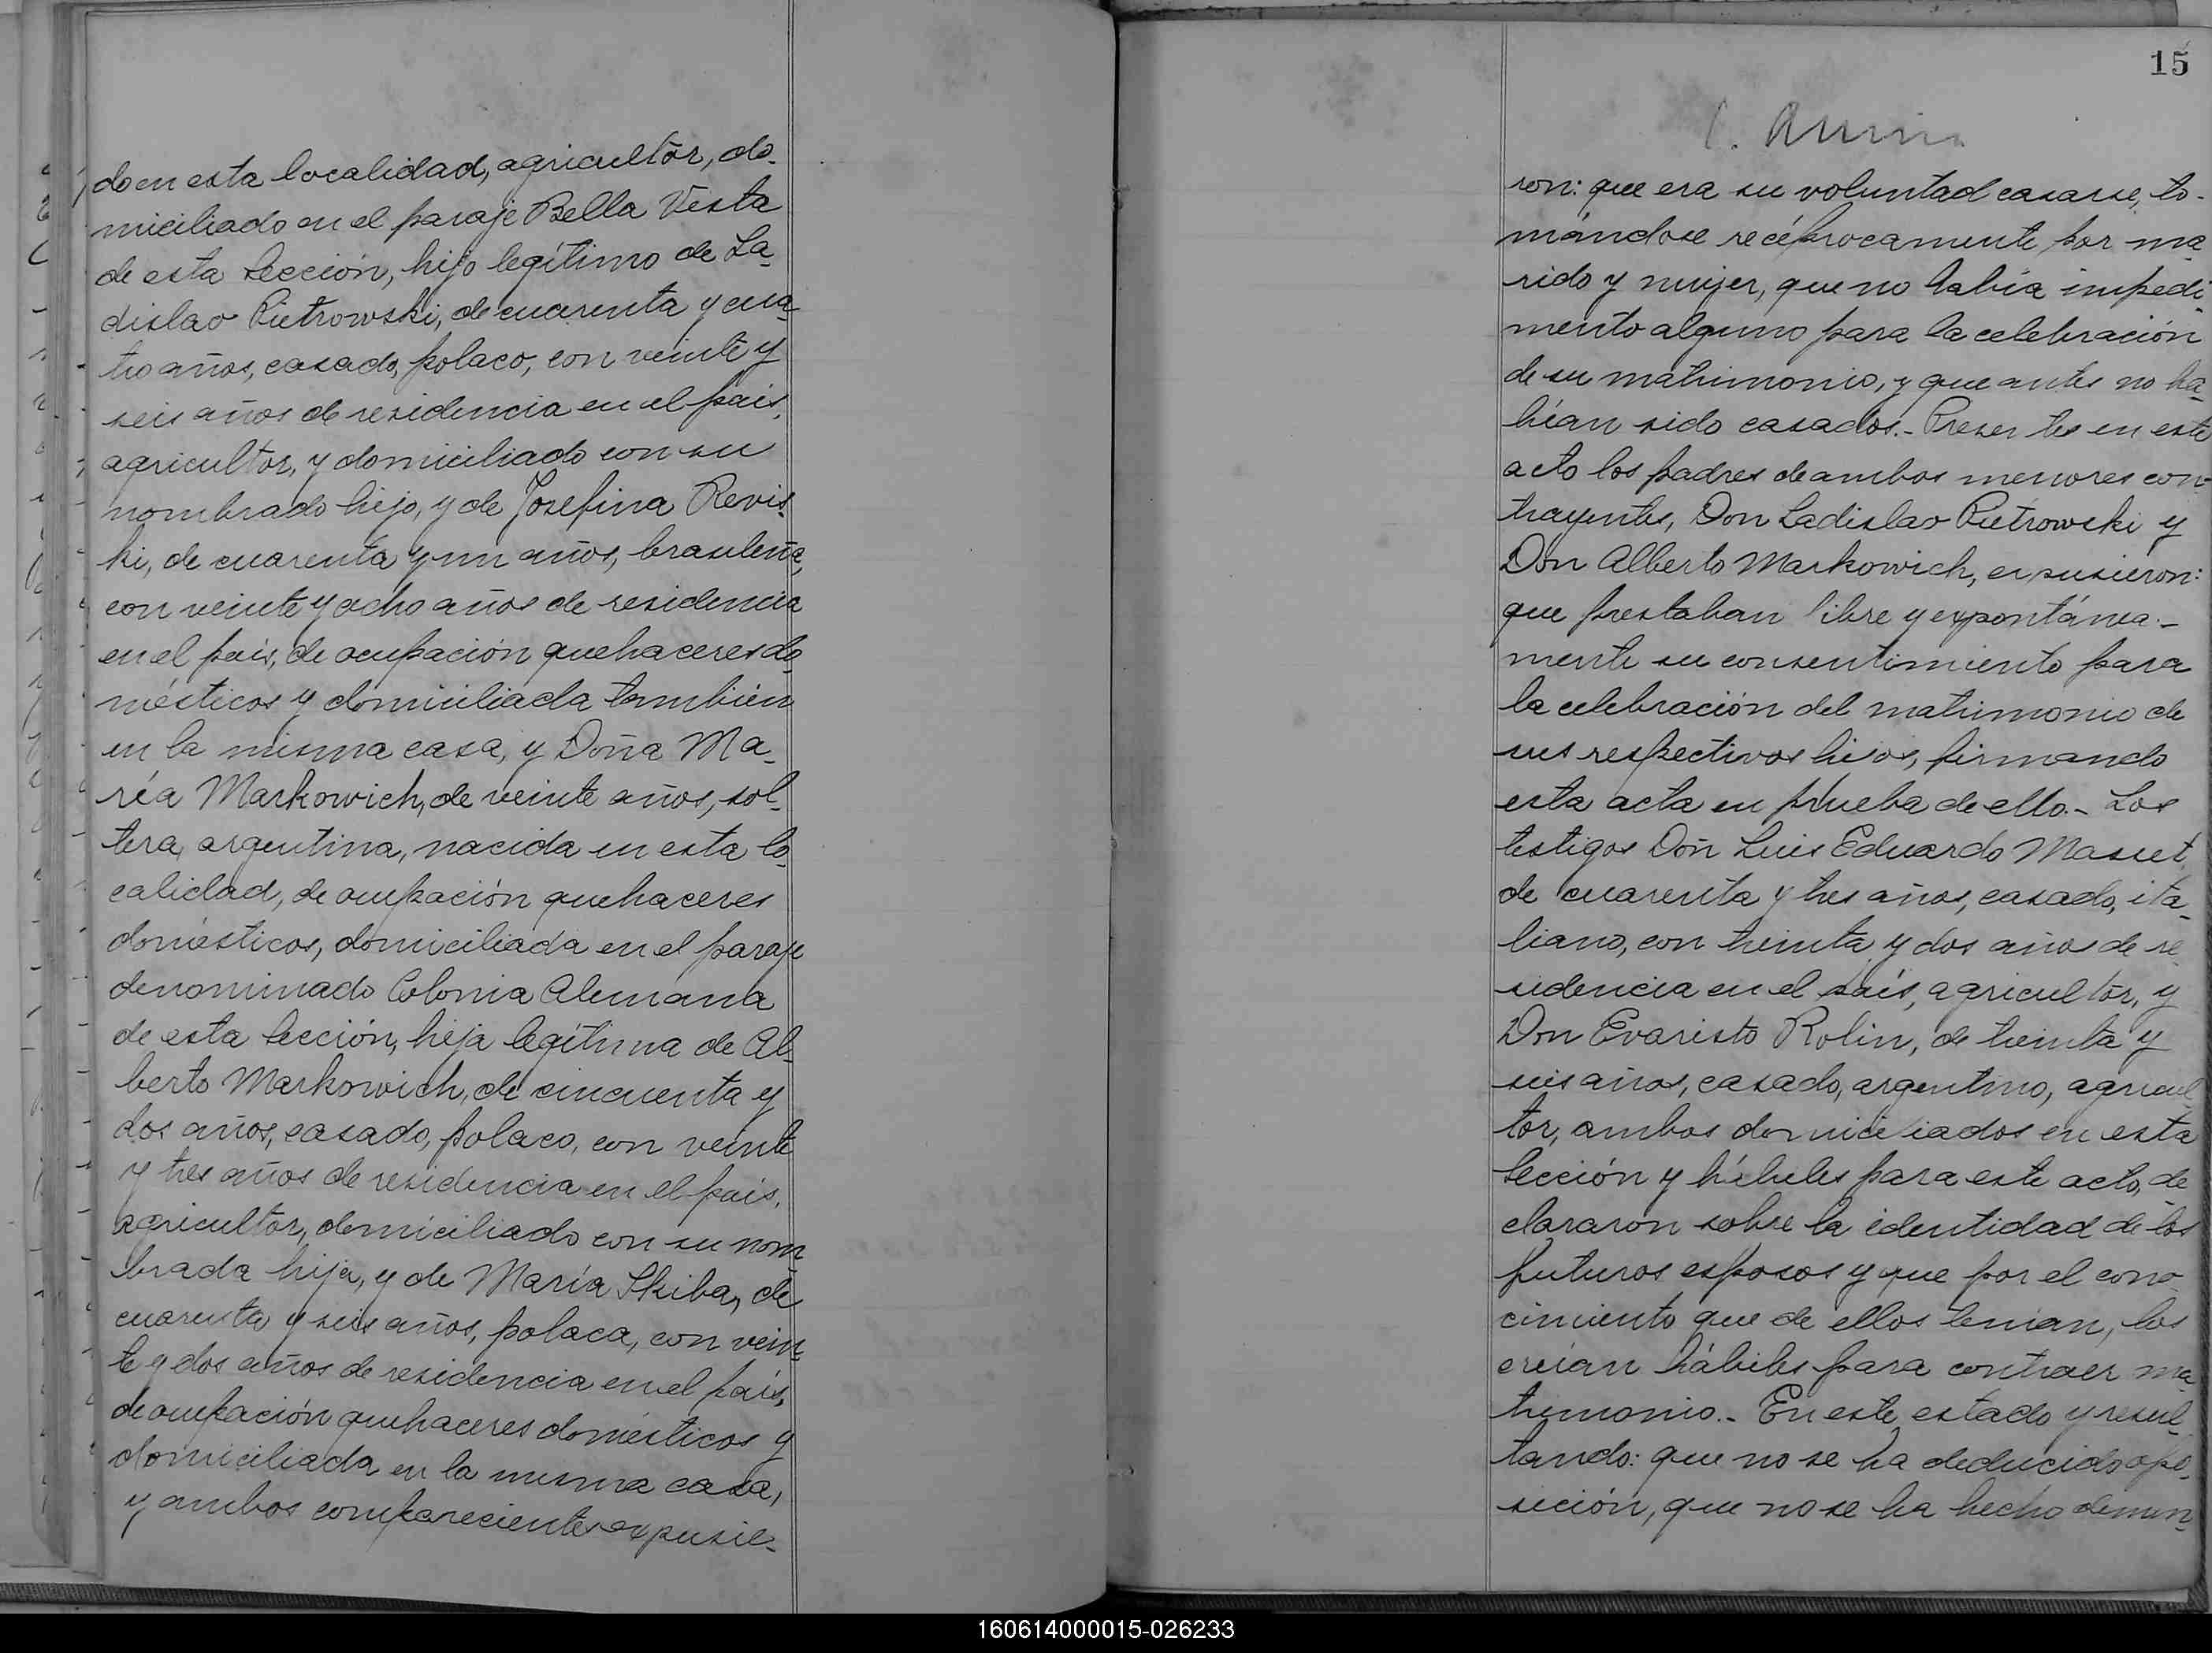 do en esta localidad, agricultor, do-
miciliado en el paraje Bella Vista
de esta Sección, hijo legítimo de La-
dislao Pietrowski, de cuarenta y cua-
tro años, casado, polaco, con veinte y
seis años de residencia en el país,
agricultor, y domiciliado con su
nombrado hijo, y de Josefina Revis-
ki, de cuarenta y un años, brasileña,
con veinte y ocho años de residencia
en el país, de ocupación quehaceres do-
mésticos y domiciliada tambien
en la misma casa, y Doña Ma-
ría Markowich, de veinte años, sol-
tera, argentina, nacida en esta lo-
calidad, de ocupación quehaceres
domésticos, domiciliada en el paraje
denominado Colonia Alemana
de esta Sección, hija legítima de Al-
berto Markowich, de cincuenta y
dos años, casado, polaco, con veinte
y tres años de residencia en el país,
agricultor, domiciliado con su nom-
brada hija, y de María Skiba, de
cuarenta y seis años, polaca, con vein-
te y dos años de residencia en el país,
de ocupación quehaceres domésticos y
domiciliada en la misma casa,
y ambos comparecientes expusie-
15
ron: que era su voluntad casarse, to-
mándose recíprocamente por ma-
rido y mujer, que no había impedi-
mento alguno para la celebración
de su matrimonio, y que antes no ha-
bían sido casados.- Presentes en este
acto los padres de ambos menores con-
trayentes, Don Ladislao Pietrowski y
Don Alberto Markowich, expusieron:
que prestaban libre y expontánea.-
mente su consentimiento para
la celebración del matrimonio de
sus respectivos hijos, firmando
esta acta en prueba de ello.- Los
testigos Don Luis Eduardo Masuet,
de cuarenta y tres años, casado, ita-
liano, con treinta y dos años de re-
sidencia en el país, agricultor, y
Don Evaristo Rolin, de treinta y
seis años, casado, argentino, agricul-
tor, ambos domiciliados en esta
Sección y hábiles para este acto, de-
clararon sobre la identidad de los
futuros esposos y que por el cono-
cimiento que de ellos tenían, los
creían hábiles para contraer ma-
trimonio.- En este estado y resul-
tando: que no se ha deducido opo-
sición, que no se ha hecho denun-
160614000015-026233